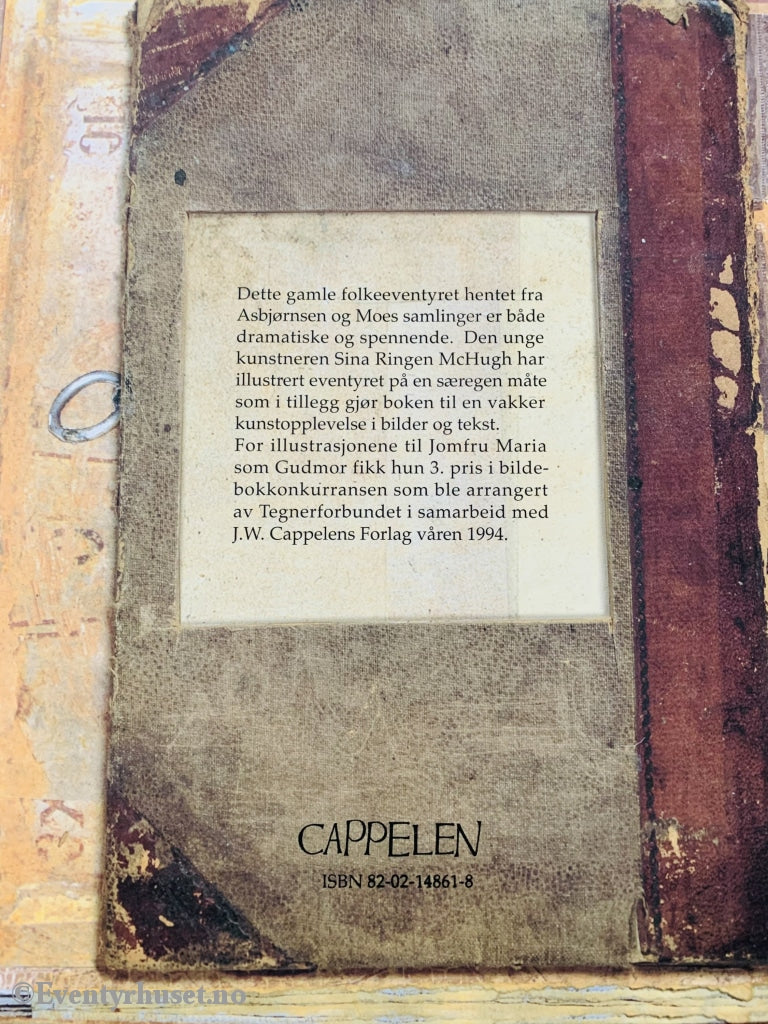 Dette gamle folkeeventyret hentet fra
Asbjørnsen og Moes samlinger er både
dramatiske og spennende. Den unge
kunstneren Sina Ringen McHugh har
illustrert eventyret på en særegen måte
som i tillegg gjør boken til en vakker
kunstopplevelse i bilder og tekst.
For illustrasjonene til Jomfru Maria
som Gudmor fikk hun 3. pris i bilde-
bokkonkurransen som ble arrangert
av Tegnerforbundet i samarbeid med
J.W. Cappelens Forlag våren 1994.
CAPPELEN
ISBN 82-02-14861-8
©Eventyrhuset.no